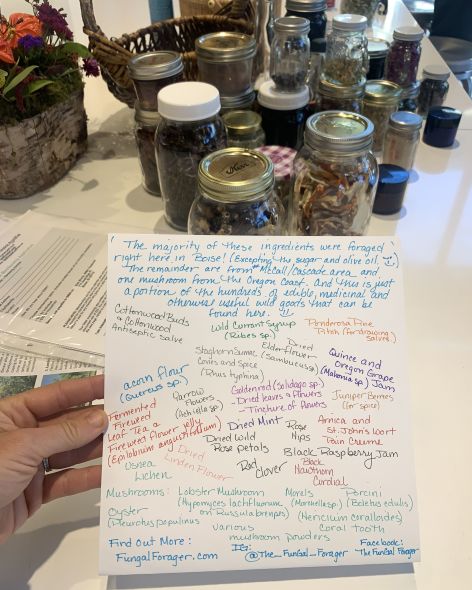 The majority of these ingredients were foraged
right here in Boise! (Excepting the sugar and olive oil.
The remainder are from McCall/Cascade area and
one mushroom from the Oregon Coast. And this is just
a portion of the hundreds of edible, medicinal and
otherwise useful wild goods that can be
found here.
Cottonwood Buds
& Cottonwood
Antiseptic Salve
Wild Currant Syrup
(Ribes sp.)
Ponderosa Pine
Pitch (for drawing
salves)
Staghorn Sumac
Cones and Spice
(Rhus typhina)
Dried
Elderflower
(Sambucus sp.)
Quince and
Oregon Grape
(Mahonia sp.) Jam
acorn flour
(Quercus sp.)
Yarrow
Flowers
(Achillea sp.)
Goldenrod (Solidago sp.)
- Dried leaves & flowers
- Tincture of flowers
Juniper Berries
(for spice)
Fermented
Fireweed
Leaf Tea &
Fireweed flower jelly
(Epilobium angustifolium)
Dried Mint
Rose
Hips
Arnica and
St. John's Wort
Pain Creme
Dried Wild
Rose petals
Black Raspberry Jam
Usnea
Lichen
Dried
Linden Flower
Red
Clover
Black
Hawthorn
Cordial
Mushrooms:
Lobster Mushroom
(Hypomyces lactifluorum
on Russula brevipes)
Morels
(Morchella sp.)
Porcini
(Boletus edulis)
Oyster
(Pleurotus populinus
(Hericium coralloides)
Coral tooth
various
mushroom powders
Find Out More:
FungalForager.com
IG:
@The_Fungal_Forager
Facebook:
The Fungal Forager